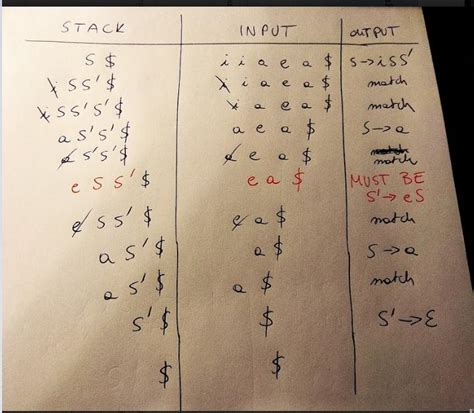 STACK INPUT OUTPUT
S $ i i a e a $ S → i S S'
i S S' $ i i a e a $ match
i S S' S' $ i a e a $ match
a S' S' $ a e a $ S → a
a S' S' $ e e a $ match
e S S' $ e a $ MUST BE
S' → e S
e S S' $ e a $ match
a S' $ a $ S → a
a S' $ a $ match
S' $ $ S' → ε
$ $